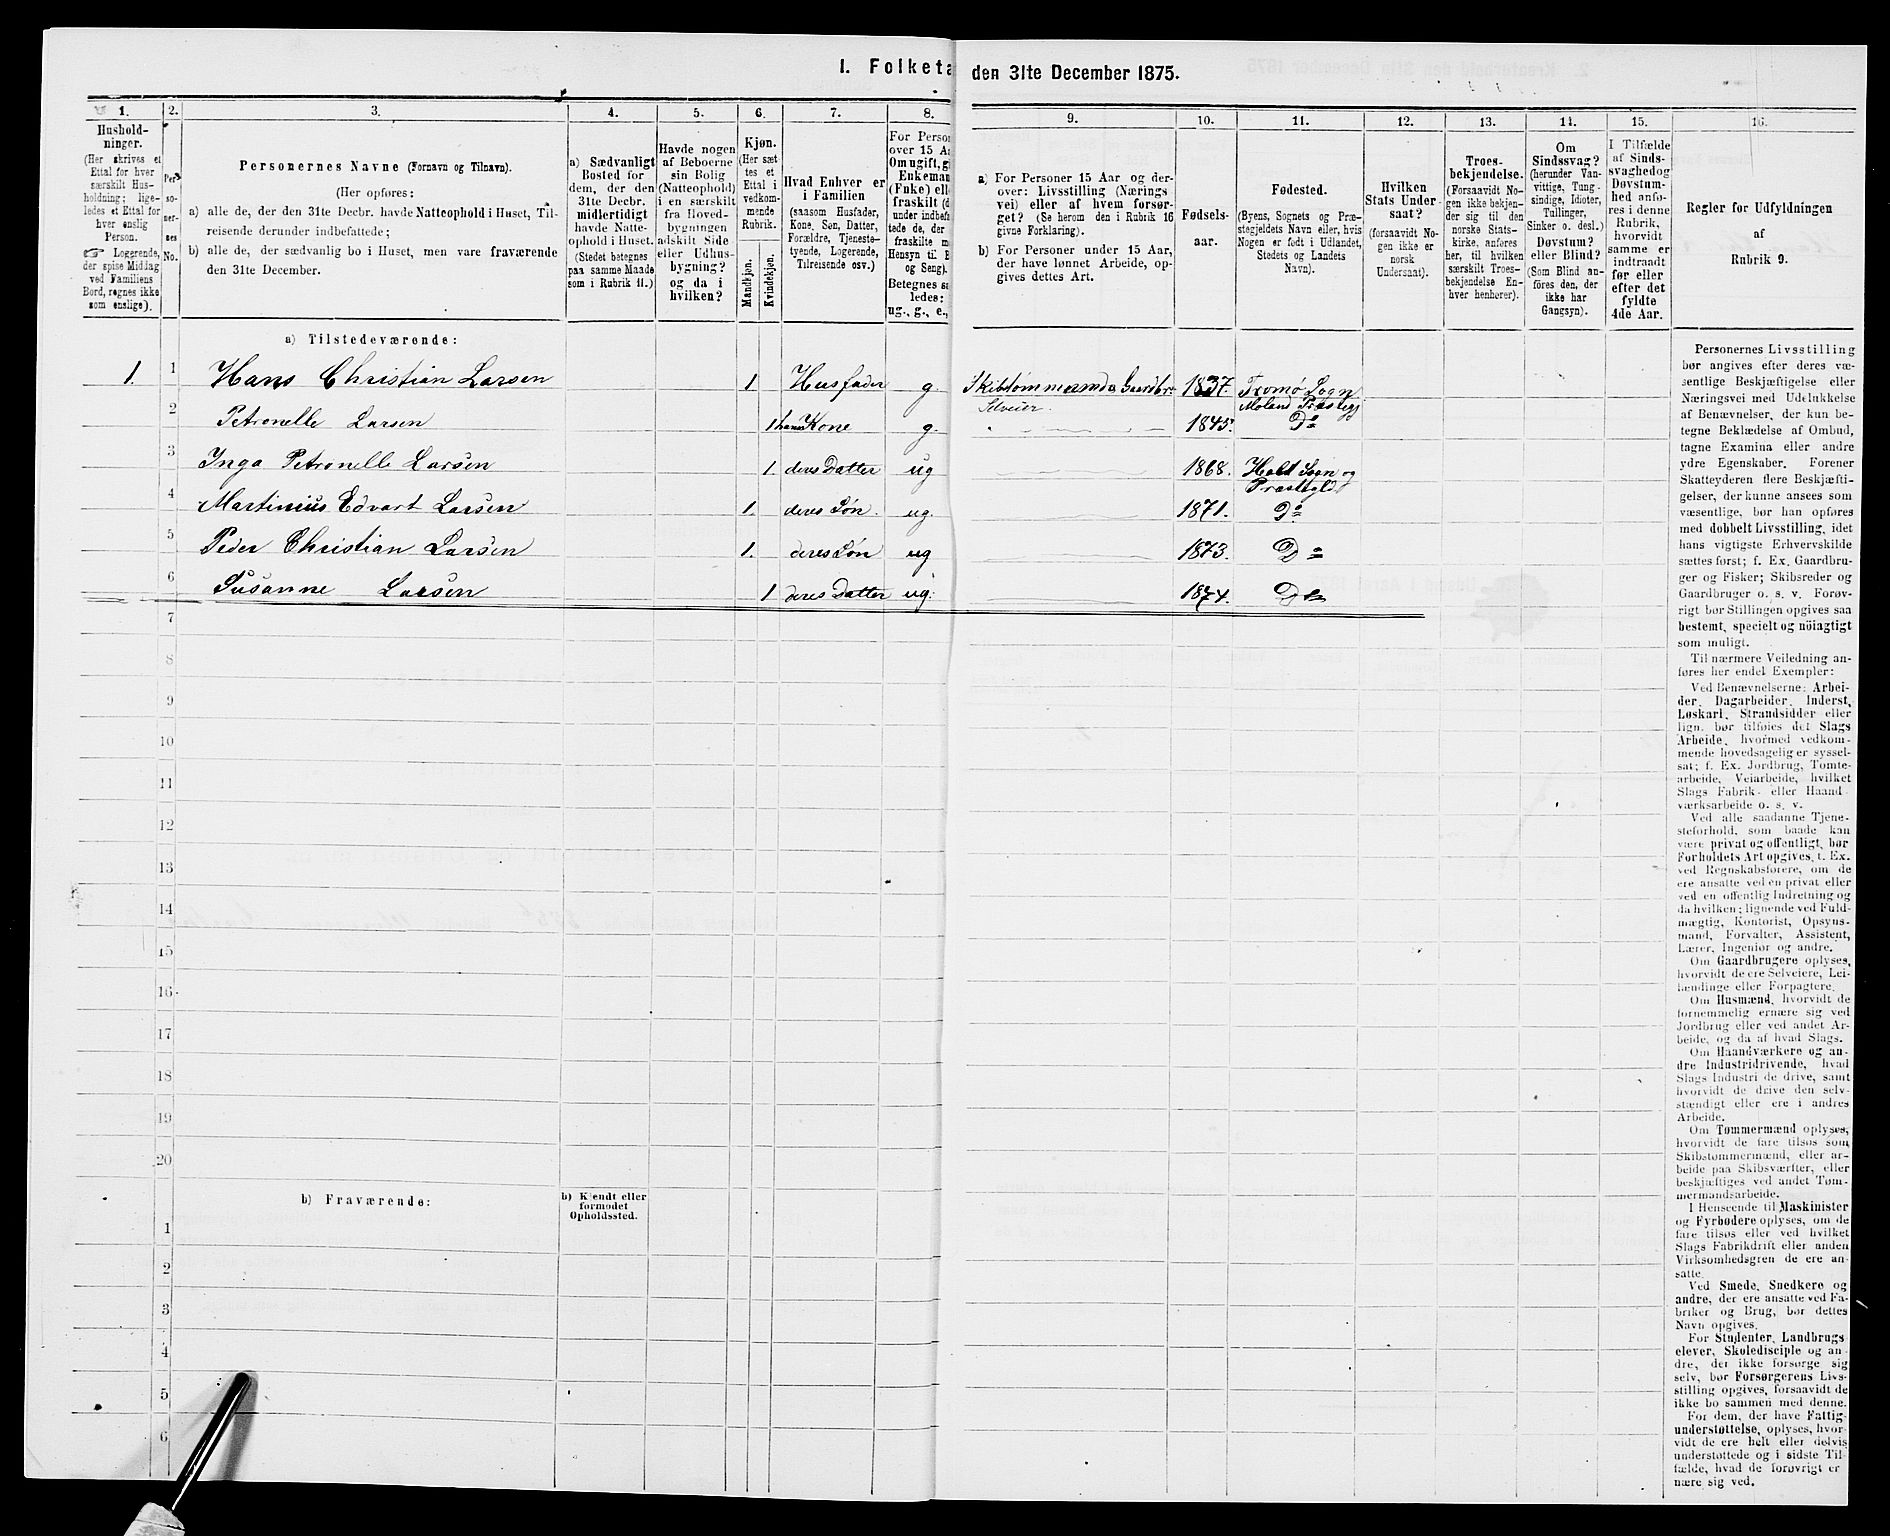 I. Folketæ den 31te December 1875.
1. 2. 3. 4. 5. 6. 7. 8. 9. 10. 11. 12. 13. 14. 15. 16.
Hushold-
ninger.
(Her skrives et
Ettal for hver
særskilt Hus-
holdning; lige-
ledes et Ettal for
hver enslig
Person.
☞ Logerende,
der spise Middag
ved Familiens
Bord, regnes ikke
som enslige).
Per-
so-
ner-
nes
No.
Personernes Navne (Fornavn og Tilnavn).
(Her opføres:
a) alle de, der den 31te Decbr. havde Natteophold i Huset, Til-
reisende derunder indbefattede;
b) alle de, der sædvanlig bo i Huset, men vare fraværende
den 31te December.
a) Sædvanligt
Bosted for
dem, der den
31te Decbr.
midlertidigt
havde Natte-
ophold i Huset.
(Stedet betegnes
paa samme Maade
som i Rubrik 11.)
Havde nogen
af Beboerne
sin Bolig
(Natteophold)
i en særskilt
fra Hoved-
bygningen
adskilt Side-
eller Udhus-
bygning?
og da i
hvilken?
Kjøn.
(Her sæt-
tes et
Ettal i
vedkom-
mende
Rubrik.
Mandkjøn.
Kvindekjøn.
Hvad Enhver er
i Familien
(saasom Husfader,
Kone, Søn, Datter,
Forældre, Tjeneste-
tyende, Logerende,
Tilreisende osv.)
For Person
over 15 A
Om ugift, g
Enkeman
(Fnke) elle
fraskilt (d
under indbefa
tede de, der
fraskilte m
Hensyn til B
og Seng).
Betegnes sa
ledes:
ug., g., e.,
a) For Personer 15 Aar og der-
over: Livsstilling (Nærings
vei) eller af hvem forsør-
get? (Se herom den i Rubrik 16
givne Forklaring).
b) For Personer under 15 Aar,
der have lønnet Arbeide, op-
gives dettes Art.
Fødsels-
aar.
Fødested.
(Byens, Sognets og Præ-
stegjeldets Navn eller, hvis
Nogen er født i Udlandet,
Stedets og Landets
Navn).
Hvilken
Stats Under
saat?
(forsaavidt No-
gen ikke er
norsk
Undersaat).
Troes-
bekjendelse.
(Forsaavidt No-
gen ikke bekjen-
der sig til den
norske Stats-
kirke, anføres
her, til hvilken
særskilt Troes-
bekjendelse En-
hver henhører).
Om
Sindssvag?
(herunder Van-
vittige, Tung-
sindige, Idioter,
Tullinger,
Sinker o. desl.)
Døvstum?
eller Blind?
(Som Blind an-
føres den, der
ikke har
Gangsyn).
I Tilfælde
af Sinds-
svaghed og
Døvstum-
hed anfø-
res i denne
Rubrik,
hvorvidt
samme er
indtraadt
før eller
efter det
fyldte
4de Aar.
Regler før Udfyldningen
af
Rubrik 9.
a) Tilstedeværende:
1. 1 Hans Christian Larsen 1 Husfader g. Skibstømmermd & Gaardbr. Selveier. 1837. Tromø Sogn Moland Præstegj
2 Petronelle Larsen 1 hans Kone g. 1845. Do
3 Inga Petronelle Larsen 1. deres Datter ug 1868. Holt Sogn og Præstegld
4 Martinius Edvart Larsen 1. deres Søn. ug. 1871. Do
5 Peder Christian Larsen 1. deres Søn ug 1873. Do
6 Susanne Larsen 1 deres Datter ug. 1874. Do
7
8
9
10
11
12
13
14
15
16
17
18
19
20
b) Fraværende:
b) Kjendt eller
formodet
Opholdssted.
1
2
3
4
5
6
Personernes Livsstilling
bør angives efter deres væ-
sentlige Beskjæftigelse eller
Næringsvei med Udelukkelse
af Benævnelser, der kun be-
tegne Beklædelse af Ombud,
tagne Examina eller andre
ydre Egenskaber. Forener
Skatteyderen flere Beskjæfti-
gelser, der kunne ansees som
væsentlige, bør han opføres
med dobbelt Livsstilling, idet
hans vigtigste Erhvervskilde
sættes først; f. Ex. Gaardbru-
ger og Fisker; Skibsreder og
Gaardbruger o. s. v. Forøv-
rigt bør Stillingen opgives saa
bestemt, specielt og nöiagtigt
som muligt.
Til nærmere Veiledning an-
føres her endel Exempler:
Ved Benævnelserne: Arbei-
der, Dagarbeider, Inderst,
Løskarl, Strandsidder eller
lign. bør tilføies det Slags
Arbeide, hvormed vedkom-
mende hovedsagelig er syssel-
sat; f. Ex. Jordbrug, Tomte-
arbeide, Veiarbeide, hvilket
Slags Fabrik- eller Haand
værksarbeide o. s. v.
Ved alle saadanne Tjene-
steforhold, som baade kan
være privat og offentligt, bør
Forholdets Art opgives, t. Ex.
ved Regnskabsførere, om de
ere ansatte ved en privat eller
ved en offentlig Indretning og
da hvilken; lignende ved Fuld-
mægtig, Kontorist, Opsyns-
mand, Forvalter, Assistent,
Lærer, Ingeniør og andre.
Om Gaardbrugere oplyses,
hvorvidt de ere Selveiere, Lei-
lændinge eller Forpagtere.
Om Husmænd, hvorvidt de
fornemmelig ernære sig ved
Jordbrug eller ved andet Ar-
beide, og da af hvad Slags.
Om Haandværkere og an-
dre Industridrivende, hvad
Slags Industri de drive, samt
hvorvidt de drive den selv-
stændigt eller ere i andres
Arbeide.
Om Tømmermænd oplyses,
hvorvidt de fare tilsøs som
Skibstømmermænd, eller ar-
beide paa Skibsværfter, eller
beskjæftiges ved andet Tøm-
mermandsarbeide.
I Henseende til Maskinister
og Fyrbødere oplyses, om de
fare tilsøs eller ved hvilket
Slags Fabrikdrift eller anden
Virksomhedsgren de ere an-
satte.
Ved Smede, Snedkere og
andre, der ere ansatte ved Fa-
briker og Brug, bør dettes
Navn opgives.
For Studenter, Landbrugs
elever, Skoledisciple og an
dre, der ikke forsørge sig
selv, bør Forsørgerens Livs-
stilling opgives, forsaavidt de
ikke bo sammen med denne.
For dem, der have Fattig-
understøttelse, oplyses, hvor-
vidt de ere helt eller delvis
understøttede og i sidste Til-
fælde, hvad de forøvrigt er
nære sig ved.